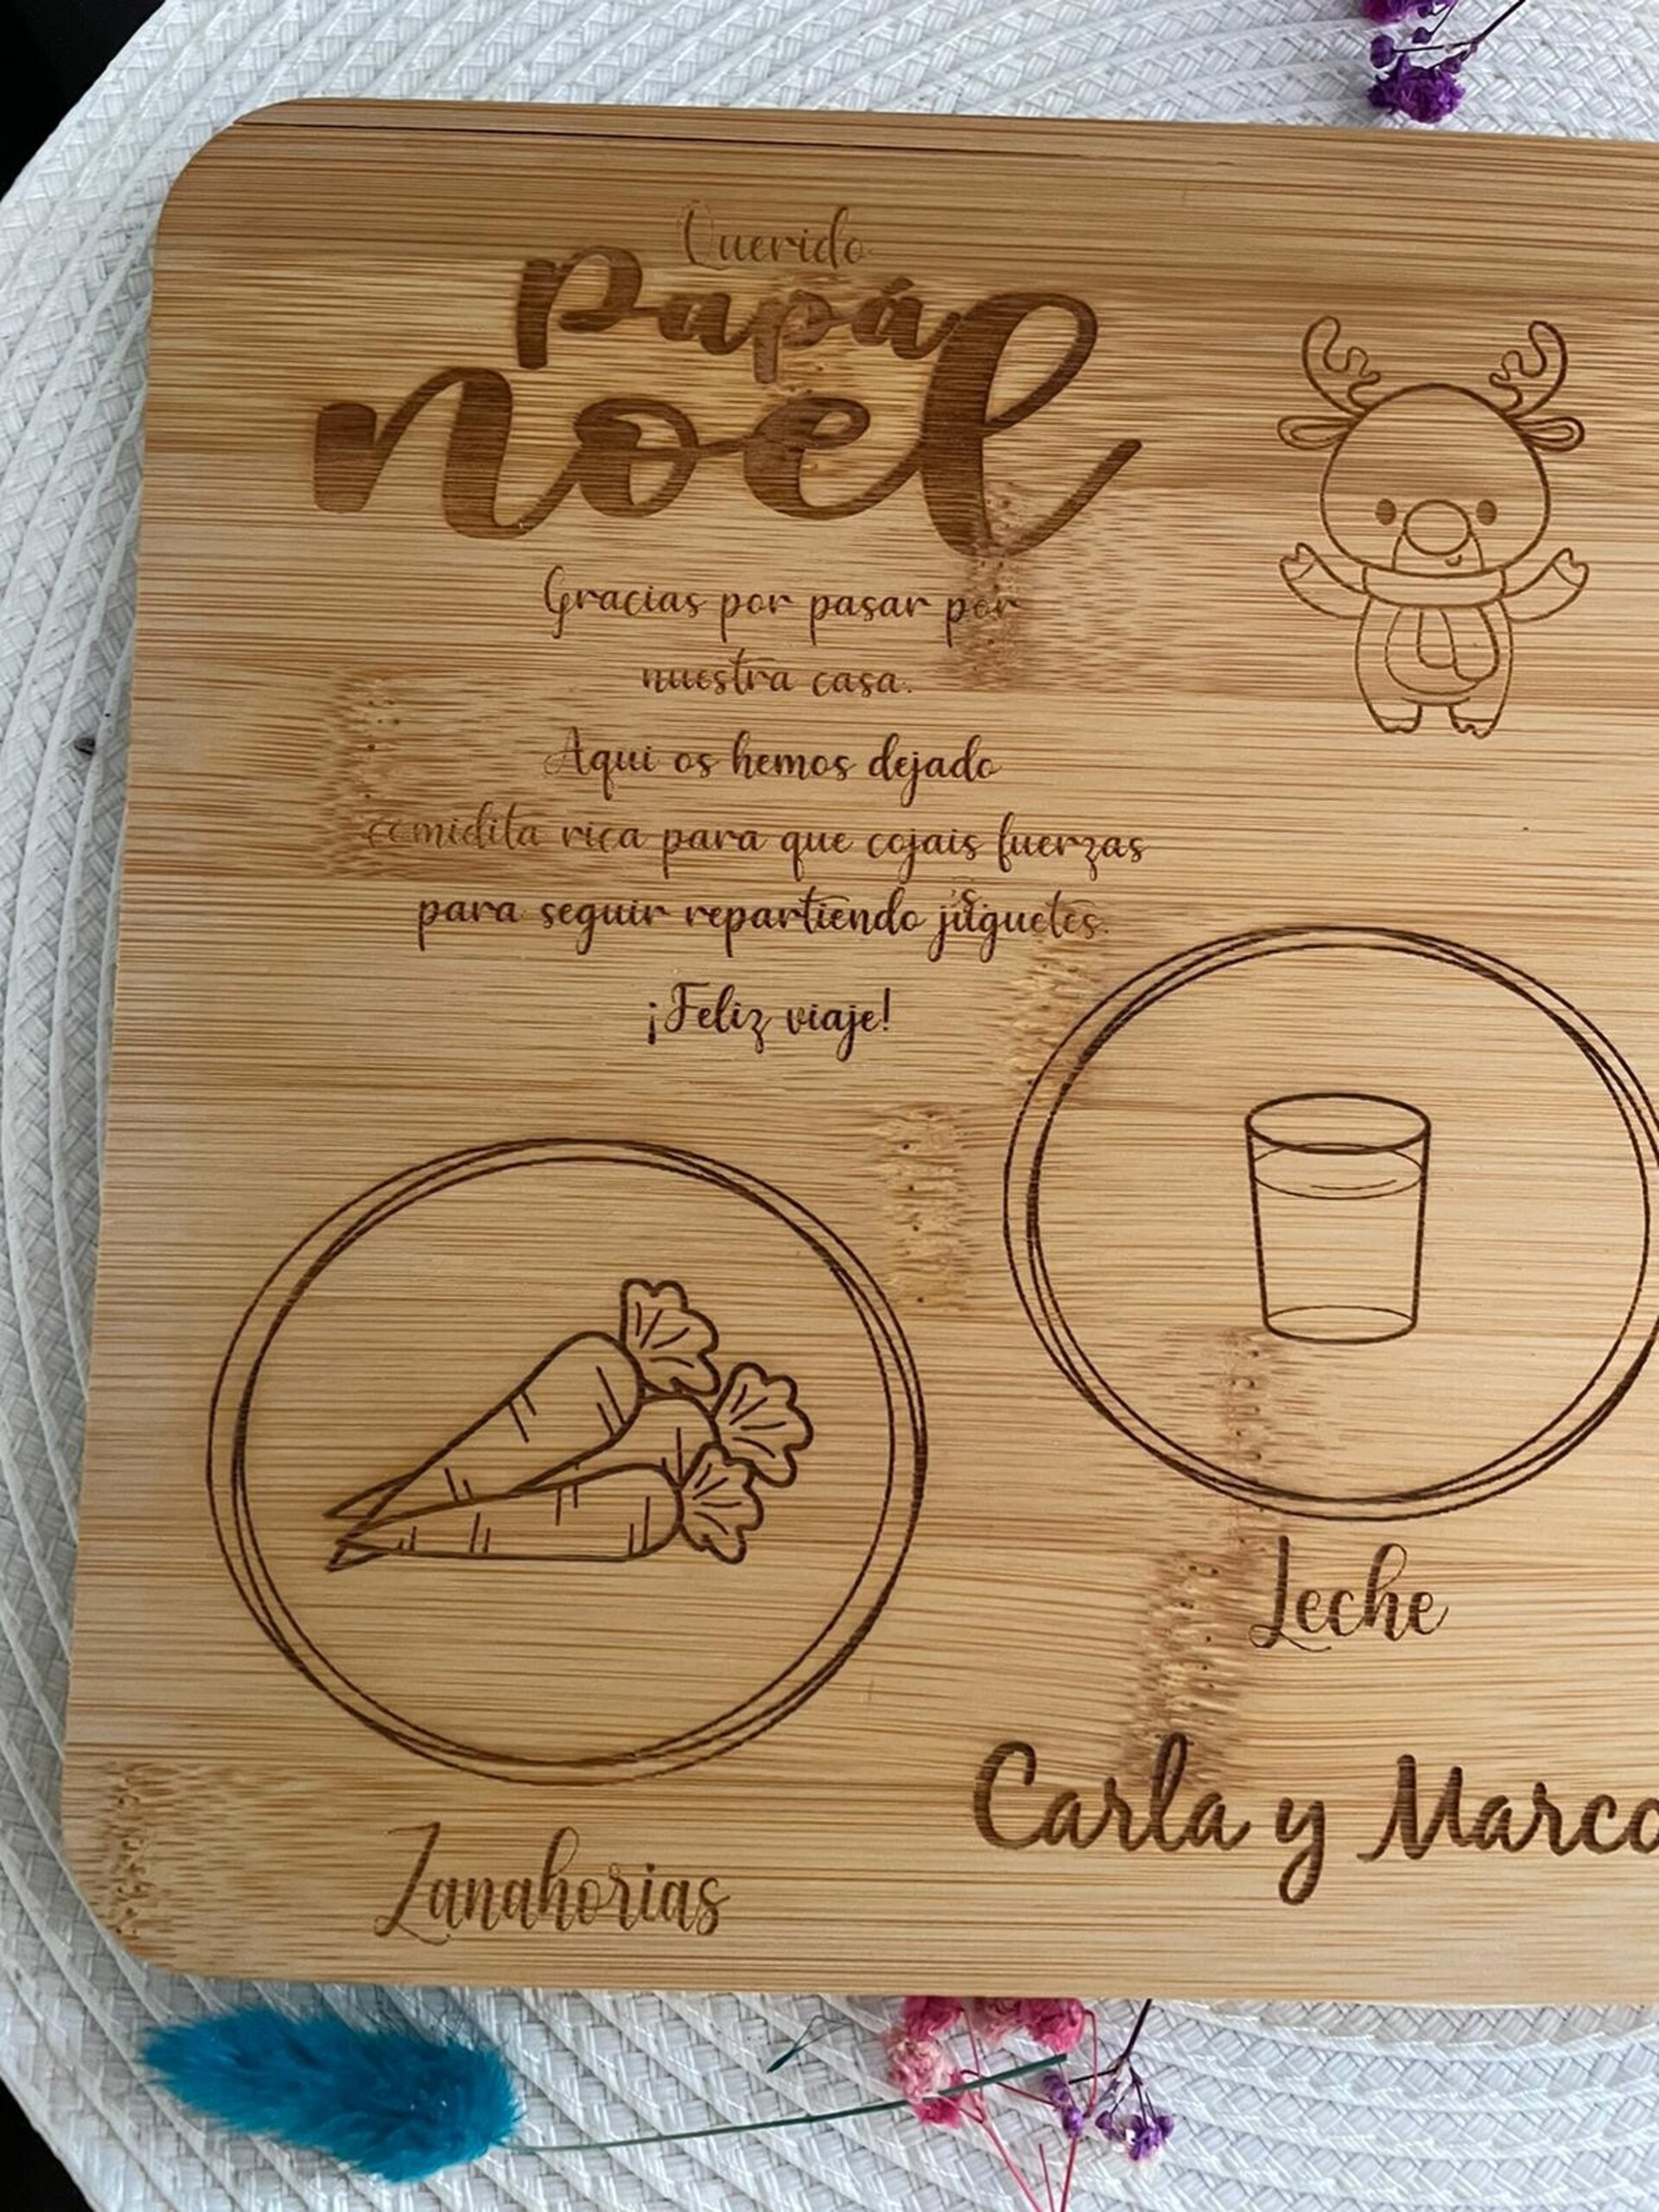 Querido
Papá
noel
Gracias por pasar por
nuestra casa.
Aqui os hemos dejado
comidita rica para que cojais fuerzas
para seguir repartiendo juguetes.
¡Feliz viaje!
Leche
Carla y Marco
Zanahorias